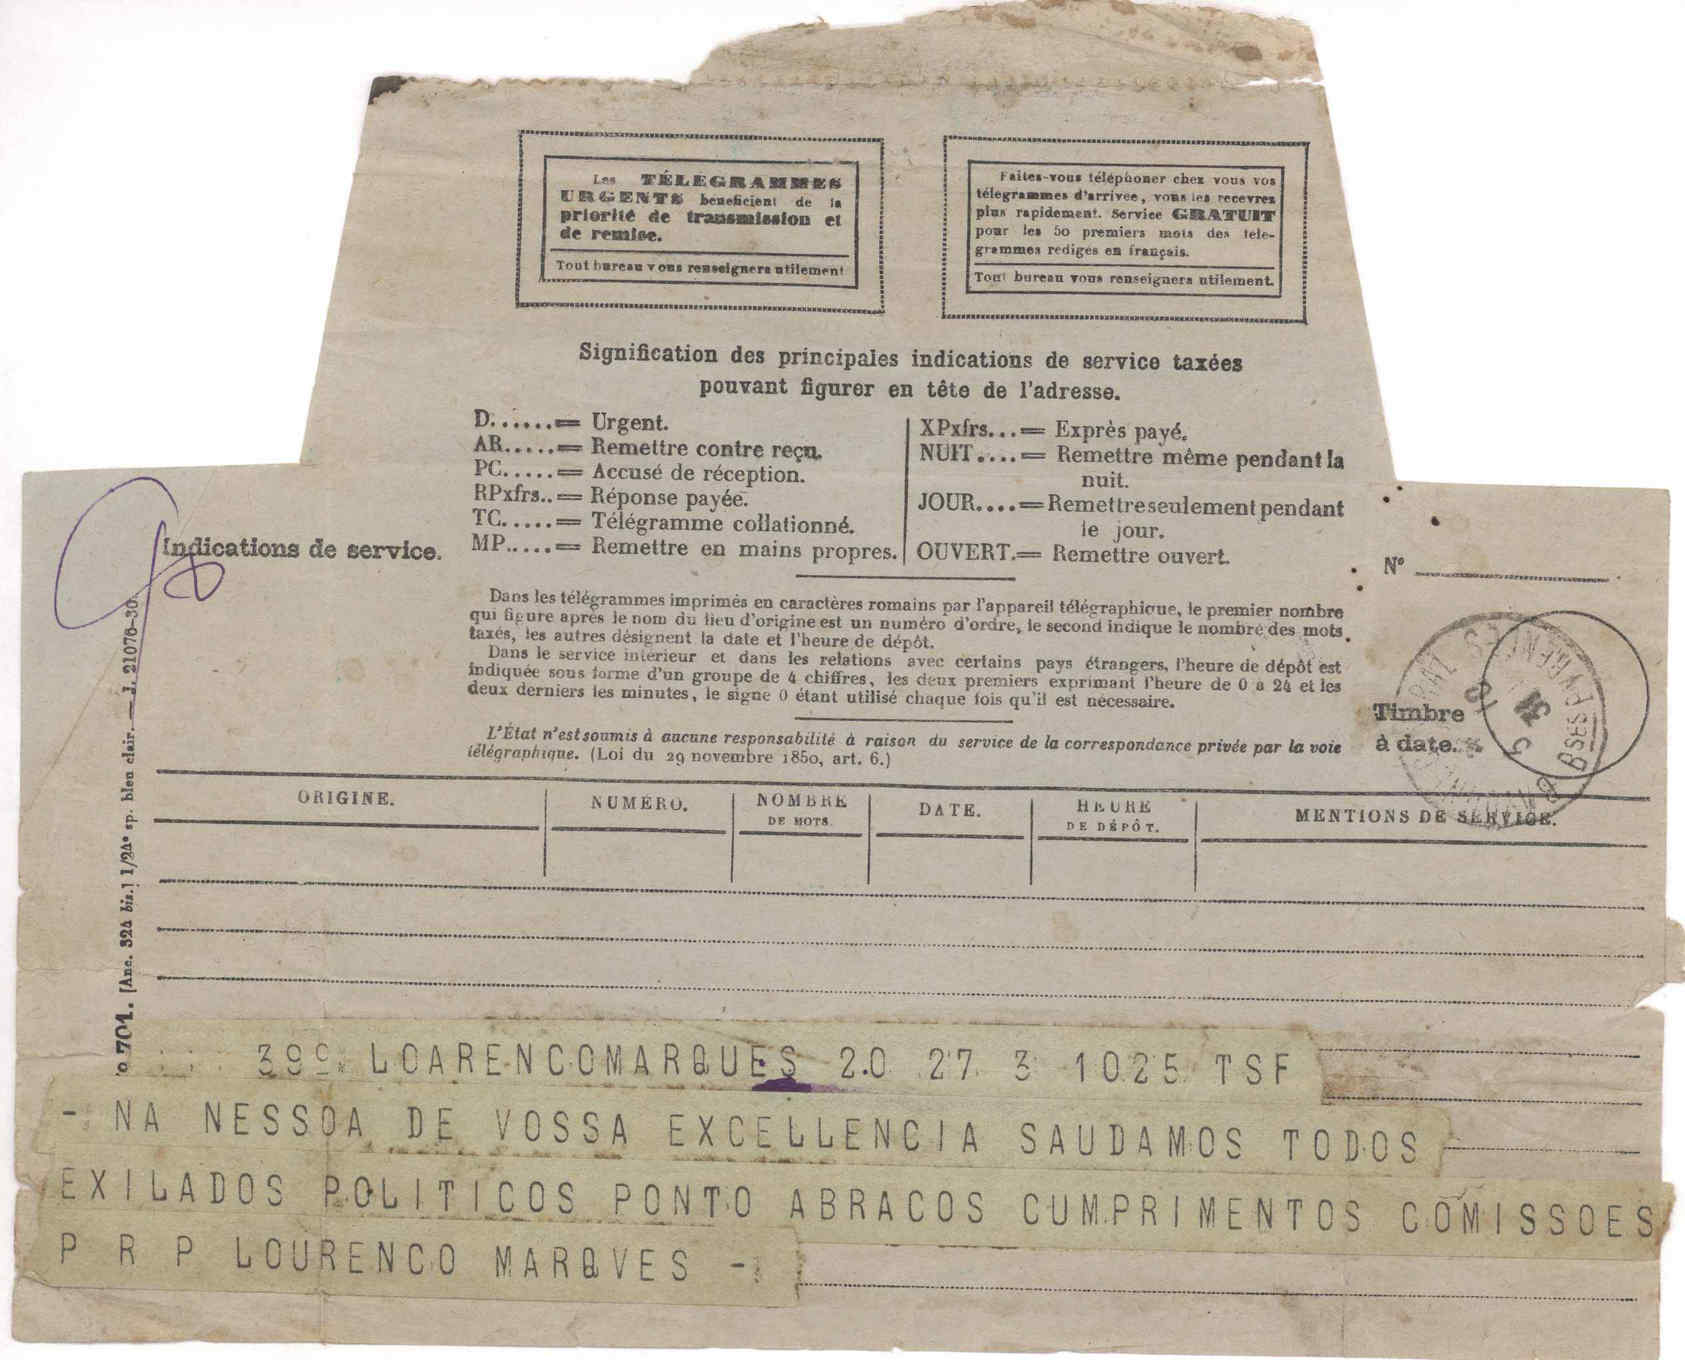 Les TÉLÉGRAMMES
URGENTS beneficient de la
priorité de transmission et
de remise.
Tout bureau vous renseignera utilement
Faites-vous téléphoner chez vous vos
télegrammes d'arrivee, vous les recevrez
plus rapidement. Service GRATUIT
pour les 50 premiers mots des tele-
grammes redigés en français.
Tout bureau vous renseignera utilement.
Signification des principales indications de service taxées
pouvant figurer en tête de l'adresse.
D......= Urgent.
AR.....= Remettre contre reçu.
PC.....= Accusé de réception.
RPxfrs..= Réponse payée.
TC.....= Télégramme collationné.
MP.....= Remettre en mains propres.
XPxfrs...= Exprès payé.
NUIT....= Remettre même pendant la
nuit.
JOUR....= Remettre seulement pendant
le jour.
OUVERT.= Remettre ouvert.
Indications de service.
N°
Dans les télégrammes imprimés en caractères romains par l'appareil télégraphique, le premier nombre
qui figure après le nom du lieu d'origine est un numéro d'ordre, le second indique le nombre des mots
taxés, les autres désignent la date et l'heure de dépôt.
Dans le service intérieur et dans les relations avec certains pays étrangers, l'heure de dépôt est
indiquée sous forme d'un groupe de 4 chiffres, les deux premiers exprimant l'heure de 0 à 24 et les
deux derniers les minutes, le signe 0 étant utilisé chaque fois qu'il est nécessaire.
L'État n'est soumis à aucune responsabilité à raison du service de la correspondance privée par la voie
télégraphique. (Loi du 29 novembre 1850, art. 6.)
Timbre
à date.
ORIGINE. NUMÉRO. NOMBRE DE MOTS. DATE. HEURE DE DÉPÔT. MENTIONS DE SERVICE.
701. [Anc. 324 bis.] 1/24e sp. bleu clair. — J. 21076-30.
LOARENCOMARQUES 20 27 3 1025 TSF
- NA NESSOA DE VOSSA EXCELLENCIA SAUDAMOS TODOS
EXILADOS POLITICOS PONTO ABRACOS CUMPRIMENTOS COMISSOES
P R P LOURENCO MARQVES -